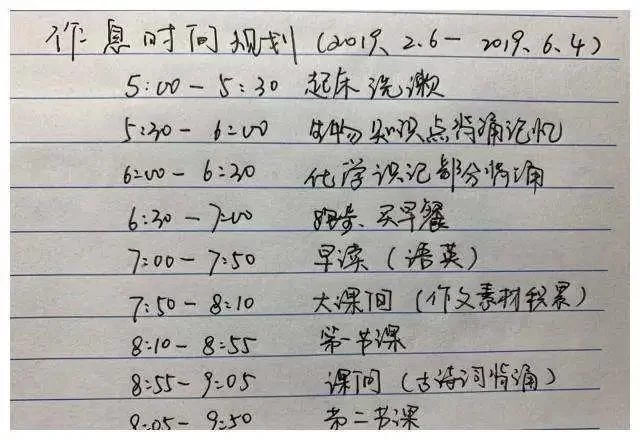 作息时间规划 (2019、2.6 — 2019、6、4)
5:00 — 5:30 起床洗漱
5:30 — 6:00 生物知识点背诵记忆
6:00 — 6:30 化学识记部分背诵
6:30 — 7:00 跑步、买早餐
7:00 — 7:50 早读 (语英)
7:50 — 8:10 大课间 (作文素材积累)
8:10 — 8:55 第一节课
8:55 — 9:05 课间 (古诗词背诵)
9:05 — 9:50 第二节课